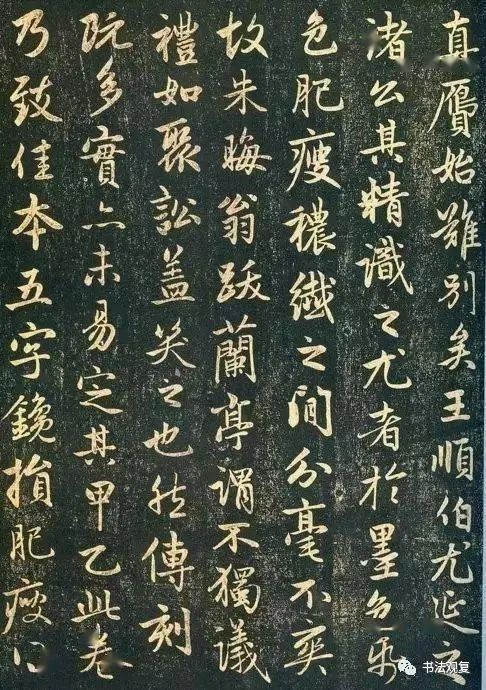 真贋始難别矣王順伯尤延之
諸公其精識之尤者於墨
色肥瘦穠纖之間分毫不爽
故朱晦翁跋蘭亭謂不獨議
禮如聚訟盖笑之也然傳刻
既多實亦未易定其甲乙此卷
乃致佳本五字鑱損肥瘦
书法观复